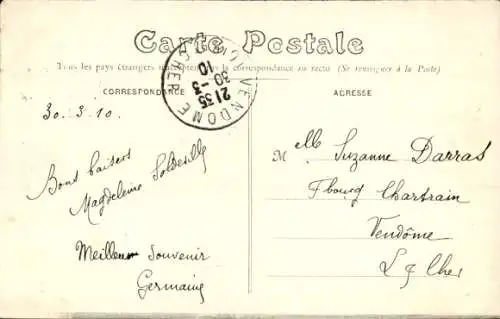 Carte Postale
Tous les pays étrangers n'acceptent pas la correspondance au recto (Se renseigner à la Poste)
CORRESPONDANCE
ADRESSE
VENDOME
CHER
21 35
30 - 3
10
30.3.10.
Bons baisers
Magdeleine
Meilleur Souvenir
Germaine
Melle Suzanne Darras
Fbourg Chartrain
Vendôme
L & Cher